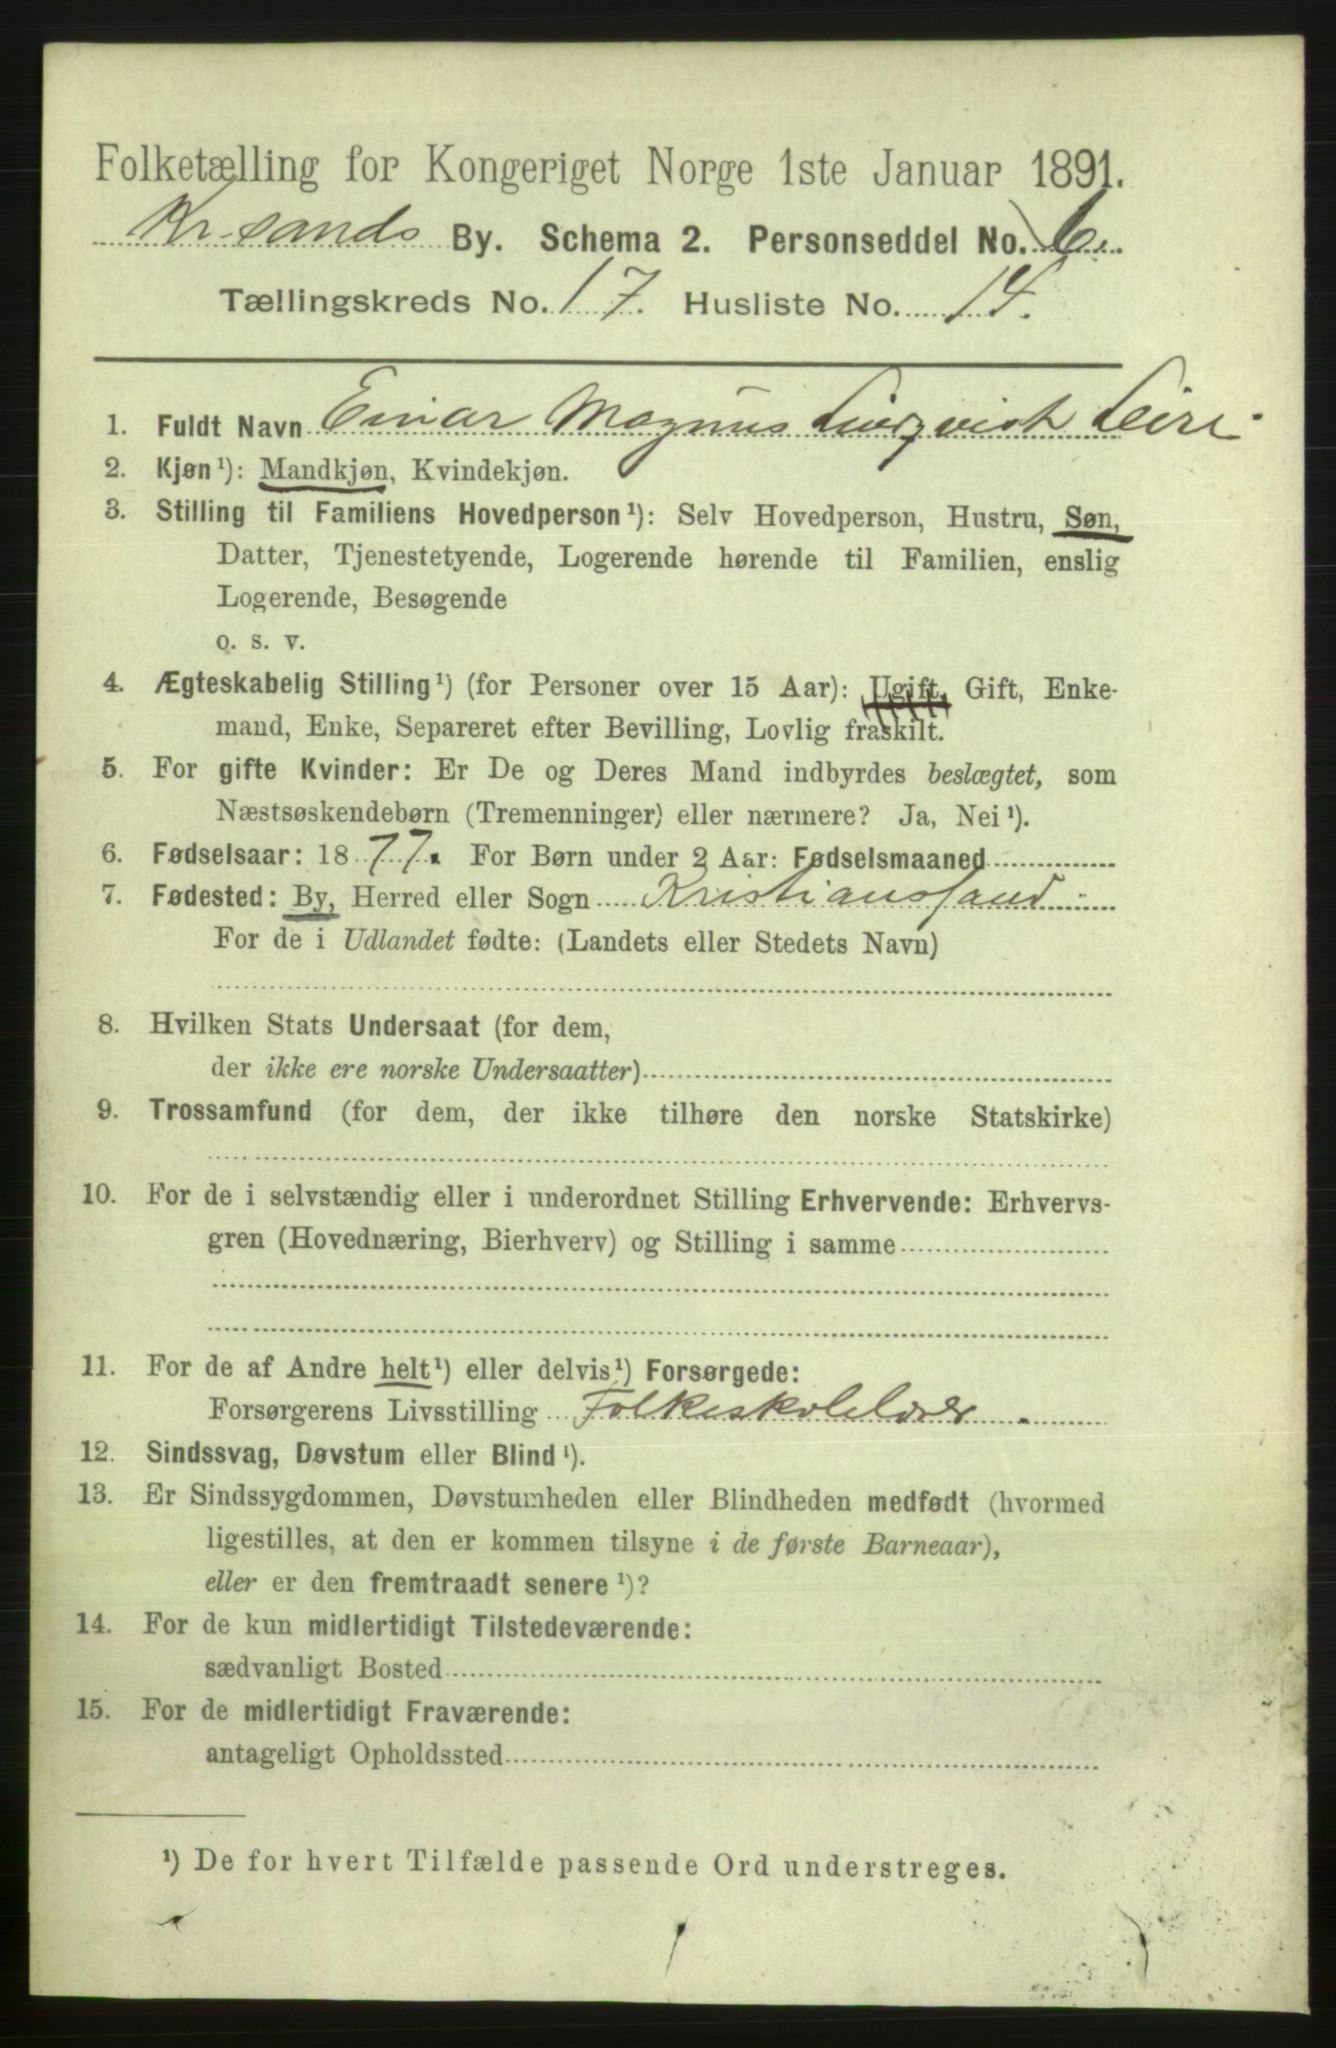 Folketælling for Kongeriget Norge 1ste Januar 1891.
Kr.sands By. Schema 2. Personseddel No. 6.
Tællingskreds No. 17. Husliste No. 14.
1. Fuldt Navn Einar Magnus Leire
2. Kjøn¹): Mandkjøn, Kvindekjøn.
3. Stilling til Familiens Hovedperson¹): Selv Hovedperson, Hustru, Søn,
Datter, Tjenestetyende, Logerende hørende til Familien, enslig
Logerende, Besøgende
o. s. v.
4. Ægteskabelig Stilling¹) (for Personer over 15 Aar): Ugift, Gift, Enke-
mand, Enke, Separeret efter Bevilling, Lovlig fraskilt.
5. For gifte Kvinder: Er De og Deres Mand indbyrdes beslægtet, som
Næstsøskendebørn (Tremenninger) eller nærmere? Ja, Nei¹).
6. Fødselsaar: 1877. For Børn under 2 Aar: Fødselsmaaned
7. Fødested: By, Herred eller Sogn Kristianssand
For de i Udlandet fødte: (Landets eller Stedets Navn)
8. Hvilken Stats Undersaat (for dem,
der ikke ere norske Undersaatter)
9. Trossamfund (for dem, der ikke tilhøre den norske Statskirke)
10. For de i selvstændig eller i underordnet Stilling Erhvervende: Erhvervs-
gren (Hovednæring, Bierhverv) og Stilling i samme
11. For de af Andre helt¹) eller delvis¹) Forsørgede:
Forsørgerens Livsstilling Folkeskolelærer.
12. Sindssvag, Døvstum eller Blind¹).
13. Er Sindssygdommen, Døvstumheden eller Blindheden medfødt (hvormed
ligestilles, at den er kommen tilsyne i de første Barneaar),
eller er den fremtraadt senere¹)?
14. For de kun midlertidigt Tilstedeværende:
sædvanligt Bosted
15. For de midlertidigt Fraværende:
antageligt Opholdssted
¹) De for hvert Tilfælde passende Ord understreges.